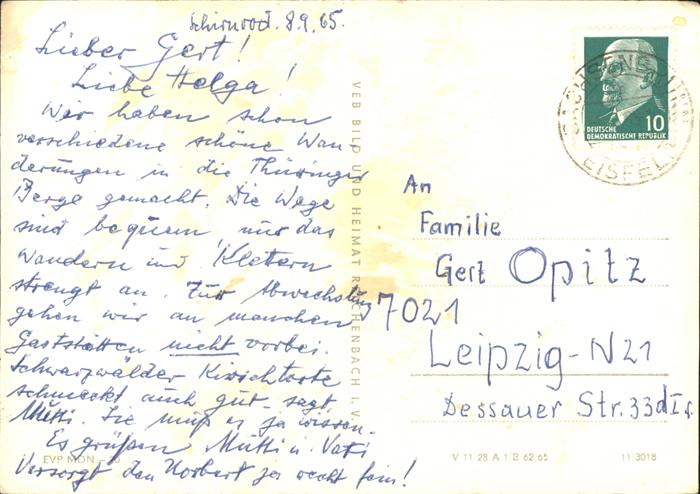 Schirnrod. 8.9.65.
Lieber Gert!
Liebe Helga!
Wir haben schon
verschiedene schöne Wan-
derungen in die Thüringer
Berge gemacht. Die Wege
sind bequem, nur das
Wandern und Klettern
strengt an. Zur Abwechslung
gehen wir an manchen
Gaststätten nicht vorbei.
Schwarzwälder Kirschtorte
schmeckt auch gut - sagt
Mutti. Sie muß es ja wissen.
Es grüßen Mutti u. Vati
Versorgt den Norbert ja recht fein!
EVP MDN
VEB BILD UND HEIMAT REICHENBACH I. V.
10
DEUTSCHE
DEMOKRATISCHE REPUBLIK
EISFELD
An
Familie
Gert Opitz
7021
Leipzig-N21
Dessauer Str. 33d I r.
V 11 28 A 1 B 62 65
11-3018